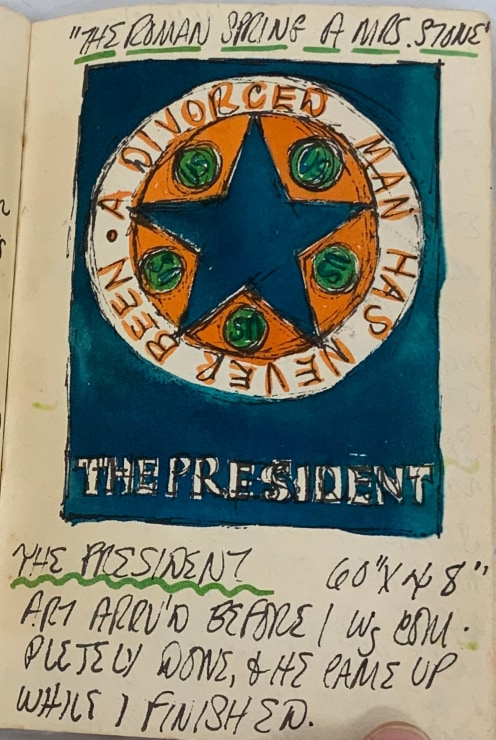 "THE ROMAN SPRING A MRS. STONE"
A DIVORCED MAN HAS NEVER BEEN •
THE PRESIDENT
THE PRESIDENT 60" X 48"
ART ARRV'D BEFORE I WS COM-
PLETELY DONE, & HE CAME UP
WHILE I FINISHED.